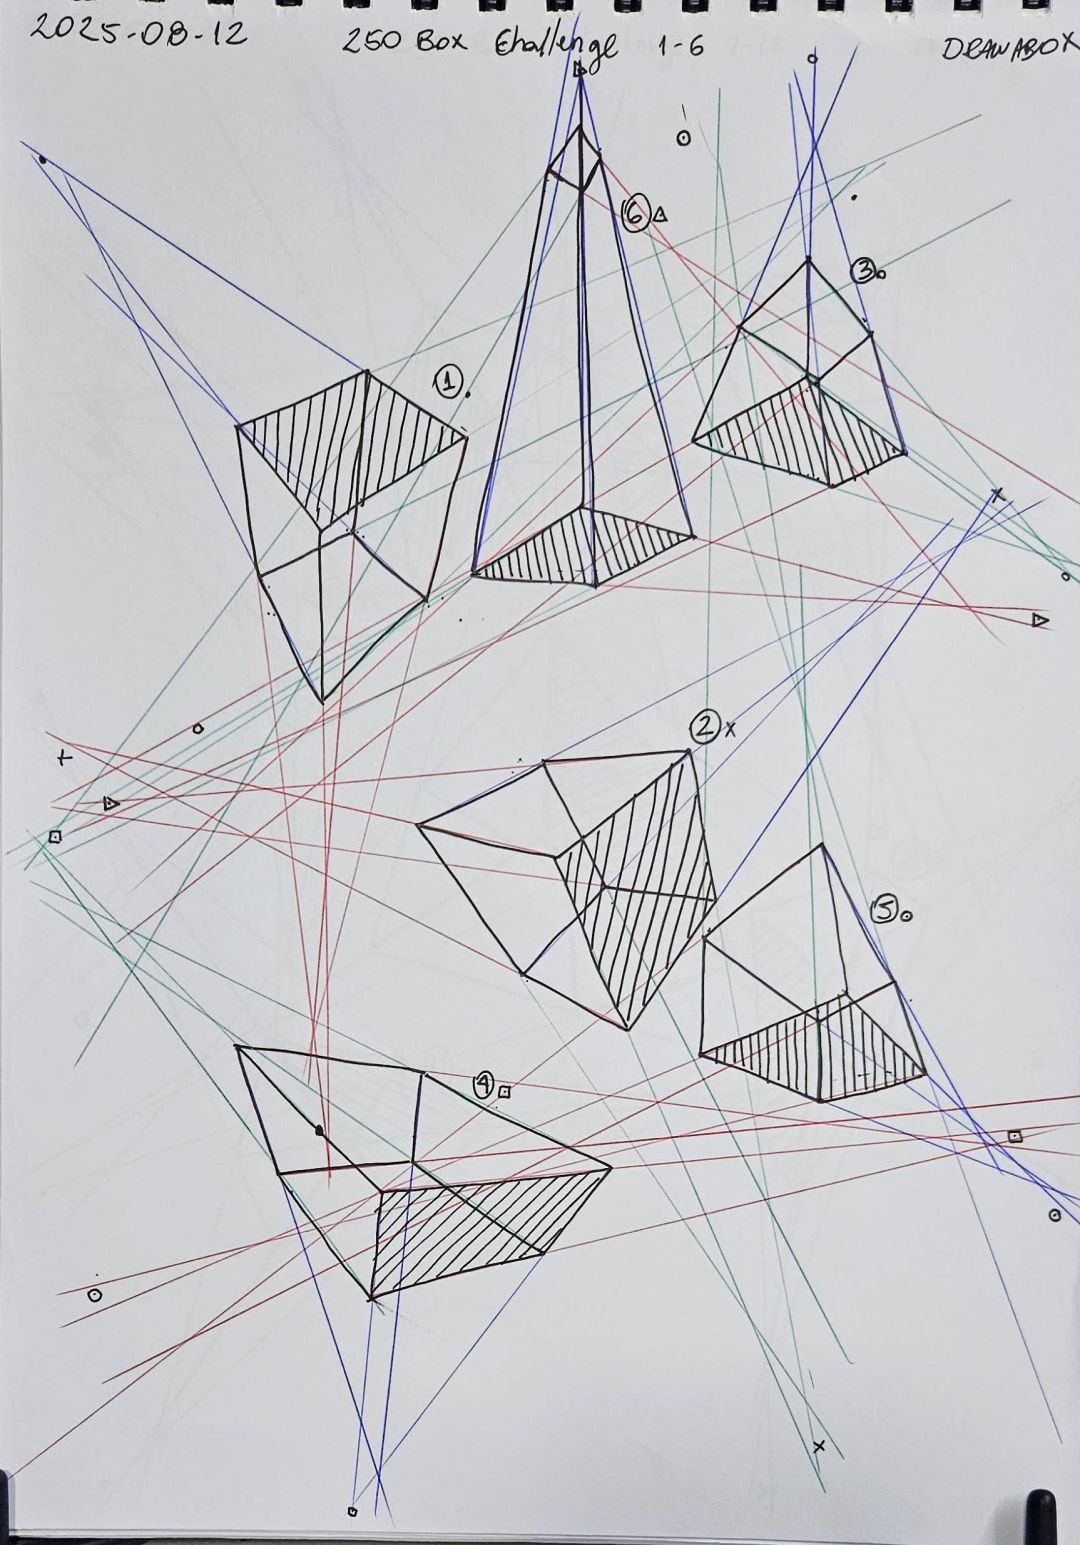 2025-08-12 250 Box Challenge 1-6 DRAWABOX
6
3
1
2 x
5
4